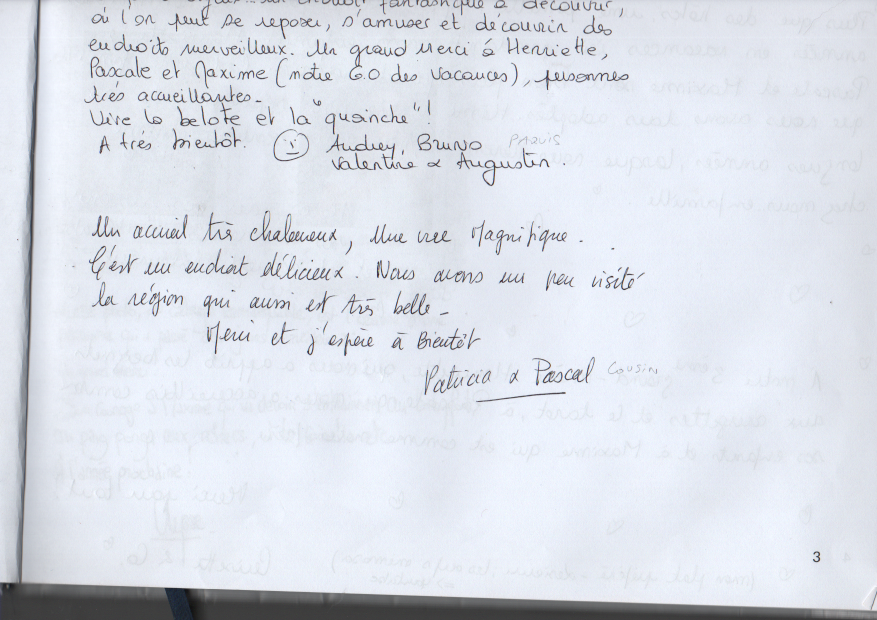 fantastique à découvrir,
où l'on peut se reposer, s'amuser et découvrir des
endroits merveilleux. Un grand merci à Henriette,
Pascale et Maxime (notre G.O des vacances), personnes
très accueillantes.
Vive la belote et la "quainche"!
A très bientôt. Audrey, Bruno PARVIS
Valentine & Augustin.
Un accueil très chaleureux, Une vue Magnifique.
C'est un endroit délicieux. Nous avons un peu visité
la région qui aussi est très belle.
Merci et j'espère à Bientôt
Patricia & Pascal COUSIN
3